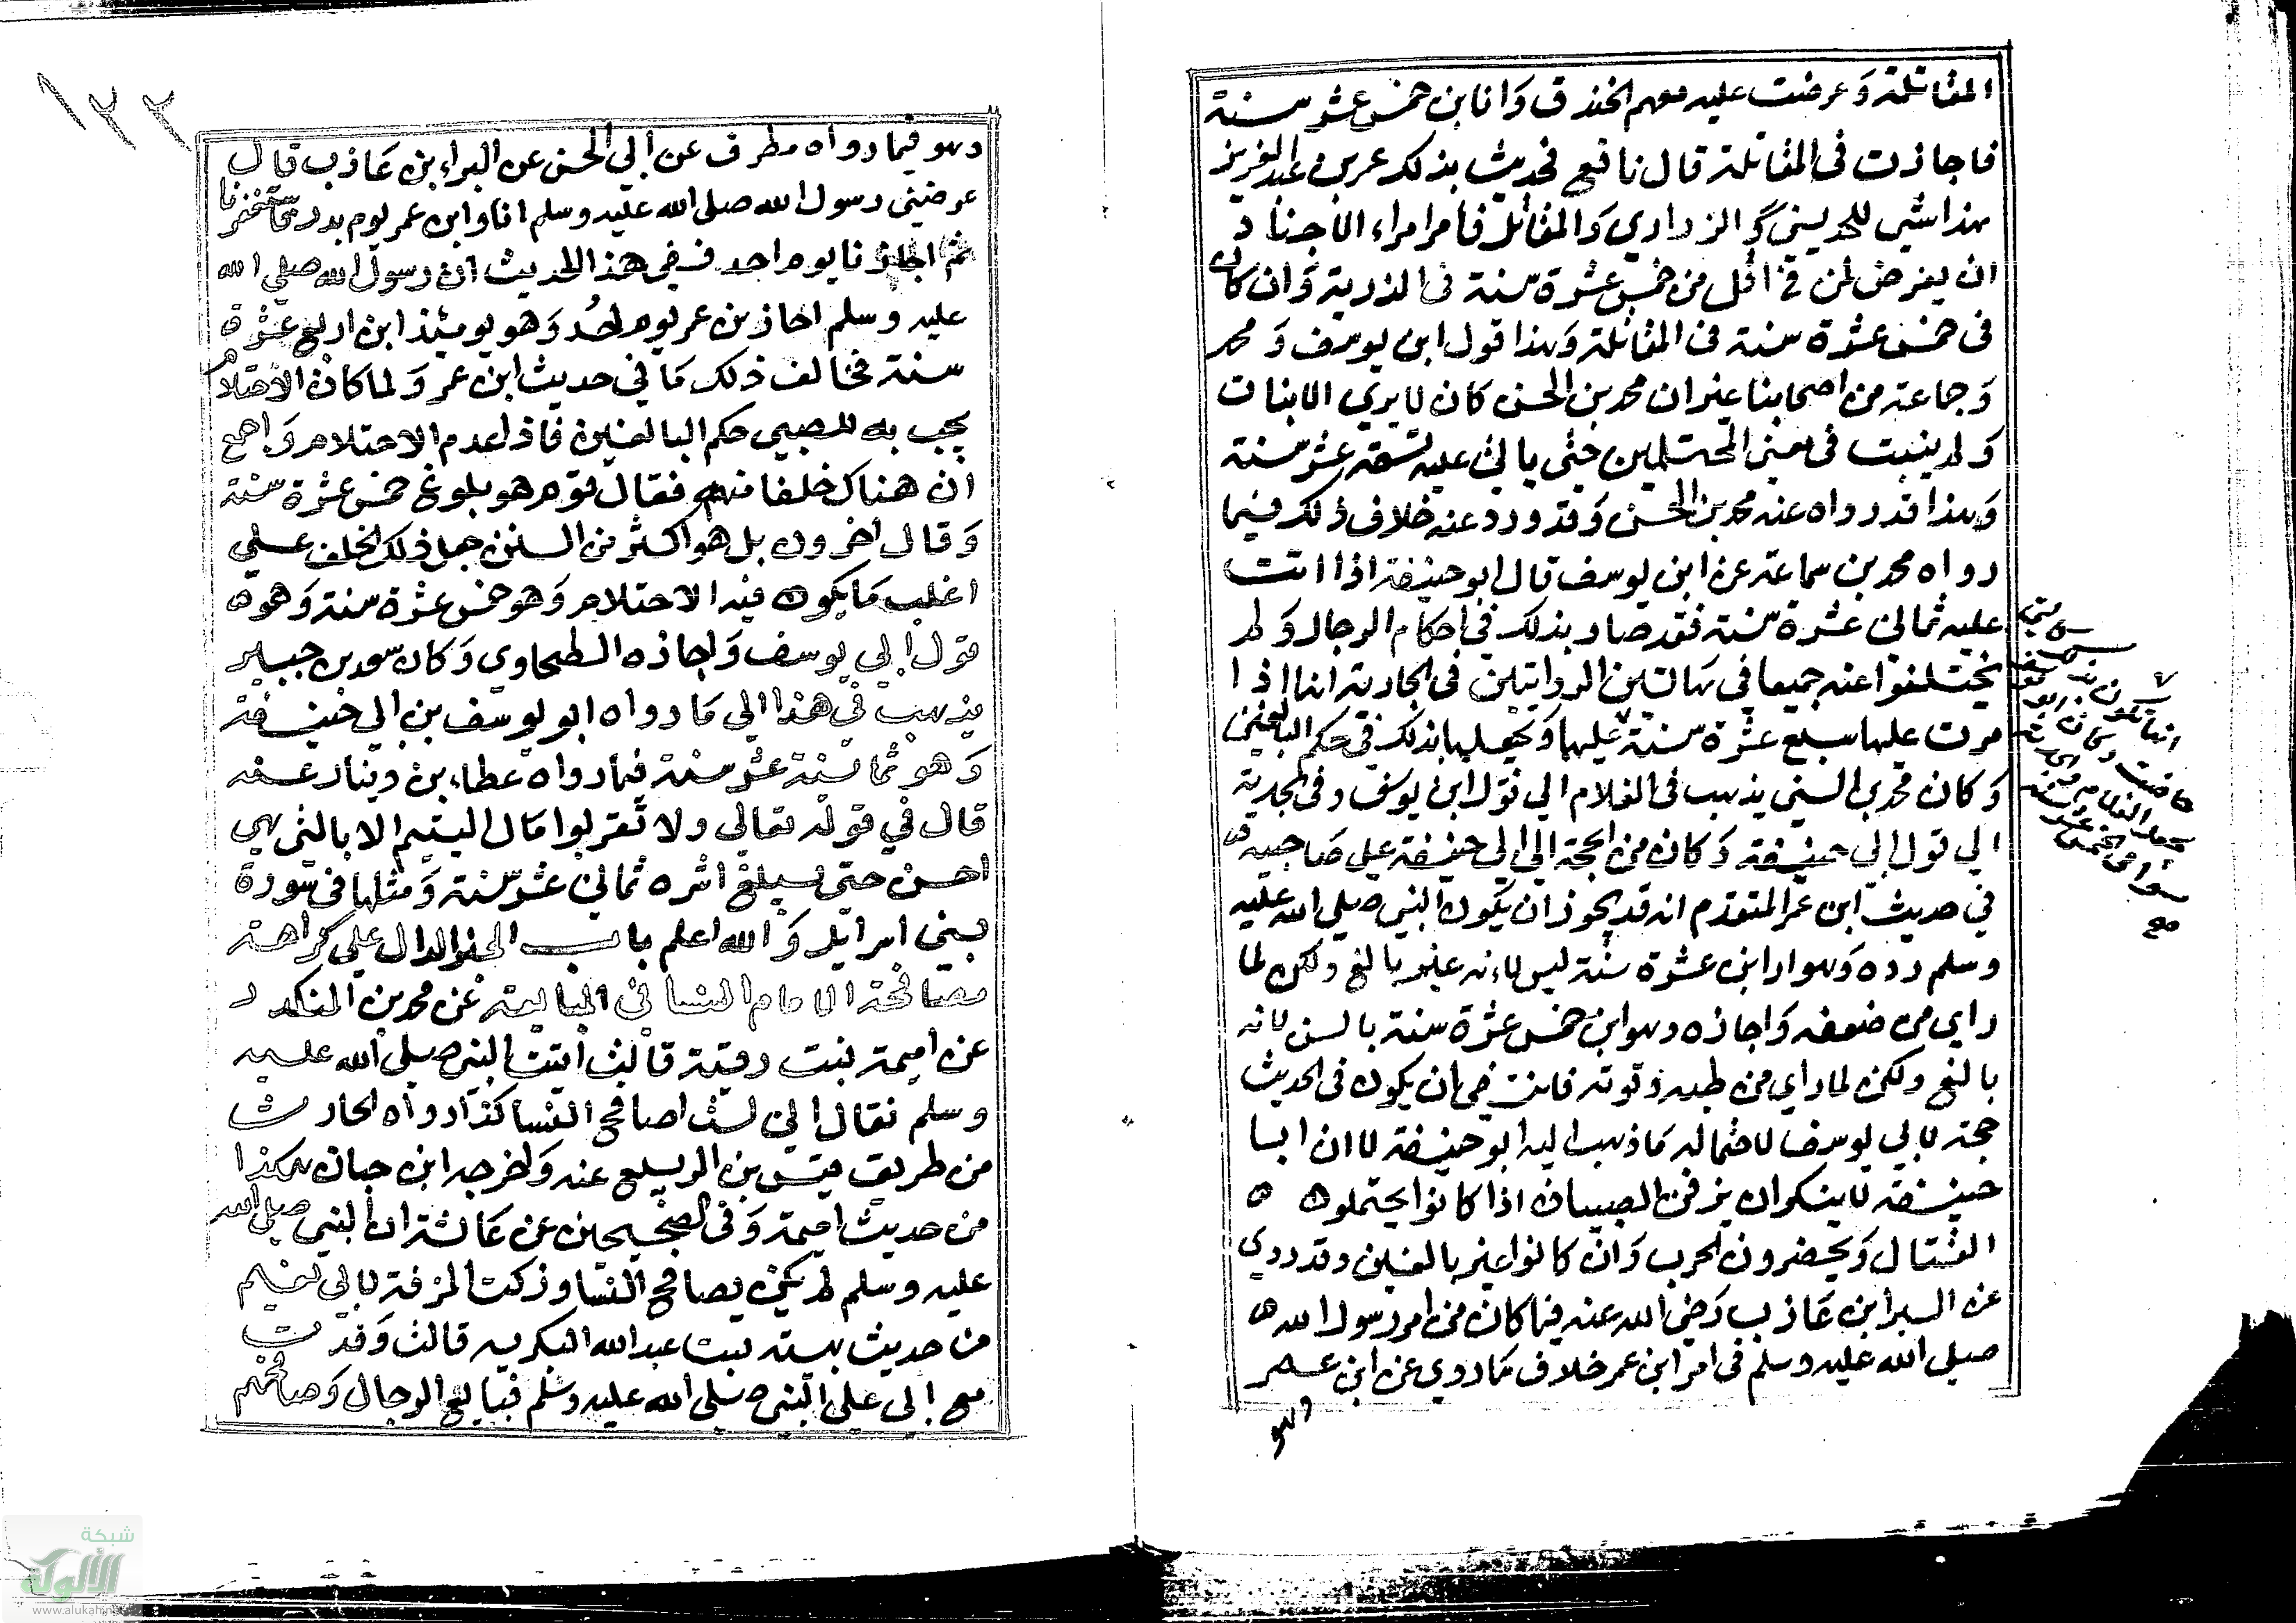 المقاتلة وعرضت عليه يوم الخندق وانا ابن خمس عشر سنة
فاجازت فى المقاتلة قال نافع فحديث بذلك عمر بن عبد العزيز
بهذا والمقاتل فامر امراء الاجناد
ان يفرض لمن فى اقل من خمس عشرة سنة فى الذرية وان كان
فى خمس عشرة سنة فى المقاتلة وهذا قول ابى يوسف و محمد
وجماعة من اصحابنا غير ان محمد بن الحسن كان لا يرى الانبات
ولم ينبت فى معنى المحتلمين حتى ياتى عليه تسعة عشر سنة
وهذا قد رواه عنه محمد بن الحسن وقد ورد عنه خلاف ذلك فيما
رواه محمد بن سماعة عن ابى يوسف قال ابو حنيفة اذا اتت
عليه ثمانى عشرة سنة فقد صار بذلك فى احكام الرجال ولم
يختلفوا عنه جميعا فى هاتين الروايتين فى الجارية انها اذا
مرت عليها سبع عشرة سنة عليها ويجعلها بذلك فى حكم البالغين
وكان محمد بن السنى يذهب فى الغلام الى قول ابى يوسف وفى الجارية
الى قول ابى حنيفة وكان من الحجة الى ابى حنيفة على صاحبيه
فى حديث ابن عمر المتقدم انه قد يجوز ان يكون النبى صلى الله عليه
وسلم رده وهو ابن عشرة سنة ليس لانه غير بالغ ولكن لما
راى من ضعفه واجازه وهو ابن خمس عشرة سنة بالسن لانه
بالغ ولكن لما راى من وقوته ان يكون فى الحديث
حجة لابى يوسف لاحتماله ما ذهب اليه ابو حنيفة لان ابا
حنيفة لا ينكر ان يفرض للصبيان اذا كانوا يحتملون
القتال ويحضرون الحرب وان كانوا غير بالغين وقد روى
عن البرا بن عازب رضى الله عنه فيما كان من امر رسول الله
صلى الله عليه وسلم فى امر ابن عمر خلاف ما روى عن ابن عمر
وهو
١٢٢
وهو فيما رواه مطرف عن ابى الحسن عن البراء بن عازب قال
عرضنى رسول الله صلى الله عليه وسلم انا وابن عمر يوم بدر فاستصغرنا
ثم اجازنا يوم احد ففى هذا الحديث ان رسول الله صلى الله
عليه وسلم اجاز بن عمر يوم احد وهو يومئذ ابن اربع عشرة
سنة فخالف ذلك ما فى حديث ابن عمر ولما كان الاحتلام
يجب به للصبى حكم البالغين فاذا عدم الاحتلام واجمع
ان هناك خلفا منه فقال قوم هو بلوغ خمس عشرة سنة
وقال اخرون بل هو اكثر من السنين جعل ذلك الخلف على
اغلب ما يكون فيه الاحتلام وهو خمس عشرة سنة وهو
قول ابى يوسف واجازه الطحاوى وكان سعيد بن جبير
يذهب فى هذا الى ما رواه ابو يوسف بن ابى حنيفة
وهو ثمانية عشر سنة فيما رواه عطاء بن دينار عنه
قال فى قوله تعالى ولا تقربوا مال اليتيم الا بالتى هى
احسن حتى يبلغ اشده ثمانى عشر سنة ومثلها فى سورة
بنى اسرايل والله اعلم باب الخبر الدال على كراهة
مصافحة الامام النسا فى المبايعة عن محمد بن المنكدر
عن اميمة بنت رقيقة قالت اتيت النبى صلى الله عليه
وسلم فقال انى لست اصافح النسا كذا رواه الحارث
من طريق قيس بن الربيع عنه واخرجه ابن حبان هكذا
من حديث اميمة وفى الصحيحين عن عائشة ان النبى صلى الله
عليه وسلم لم يكن يصافح النسا وذكر المعرفة لابى نعيم
من حديث بهية بنت عبد الله البكرية قالت وفدت
مع ابى على النبى صلى الله عليه وسلم فبايع الرجال وصافحهم
شبكة
الألوكة